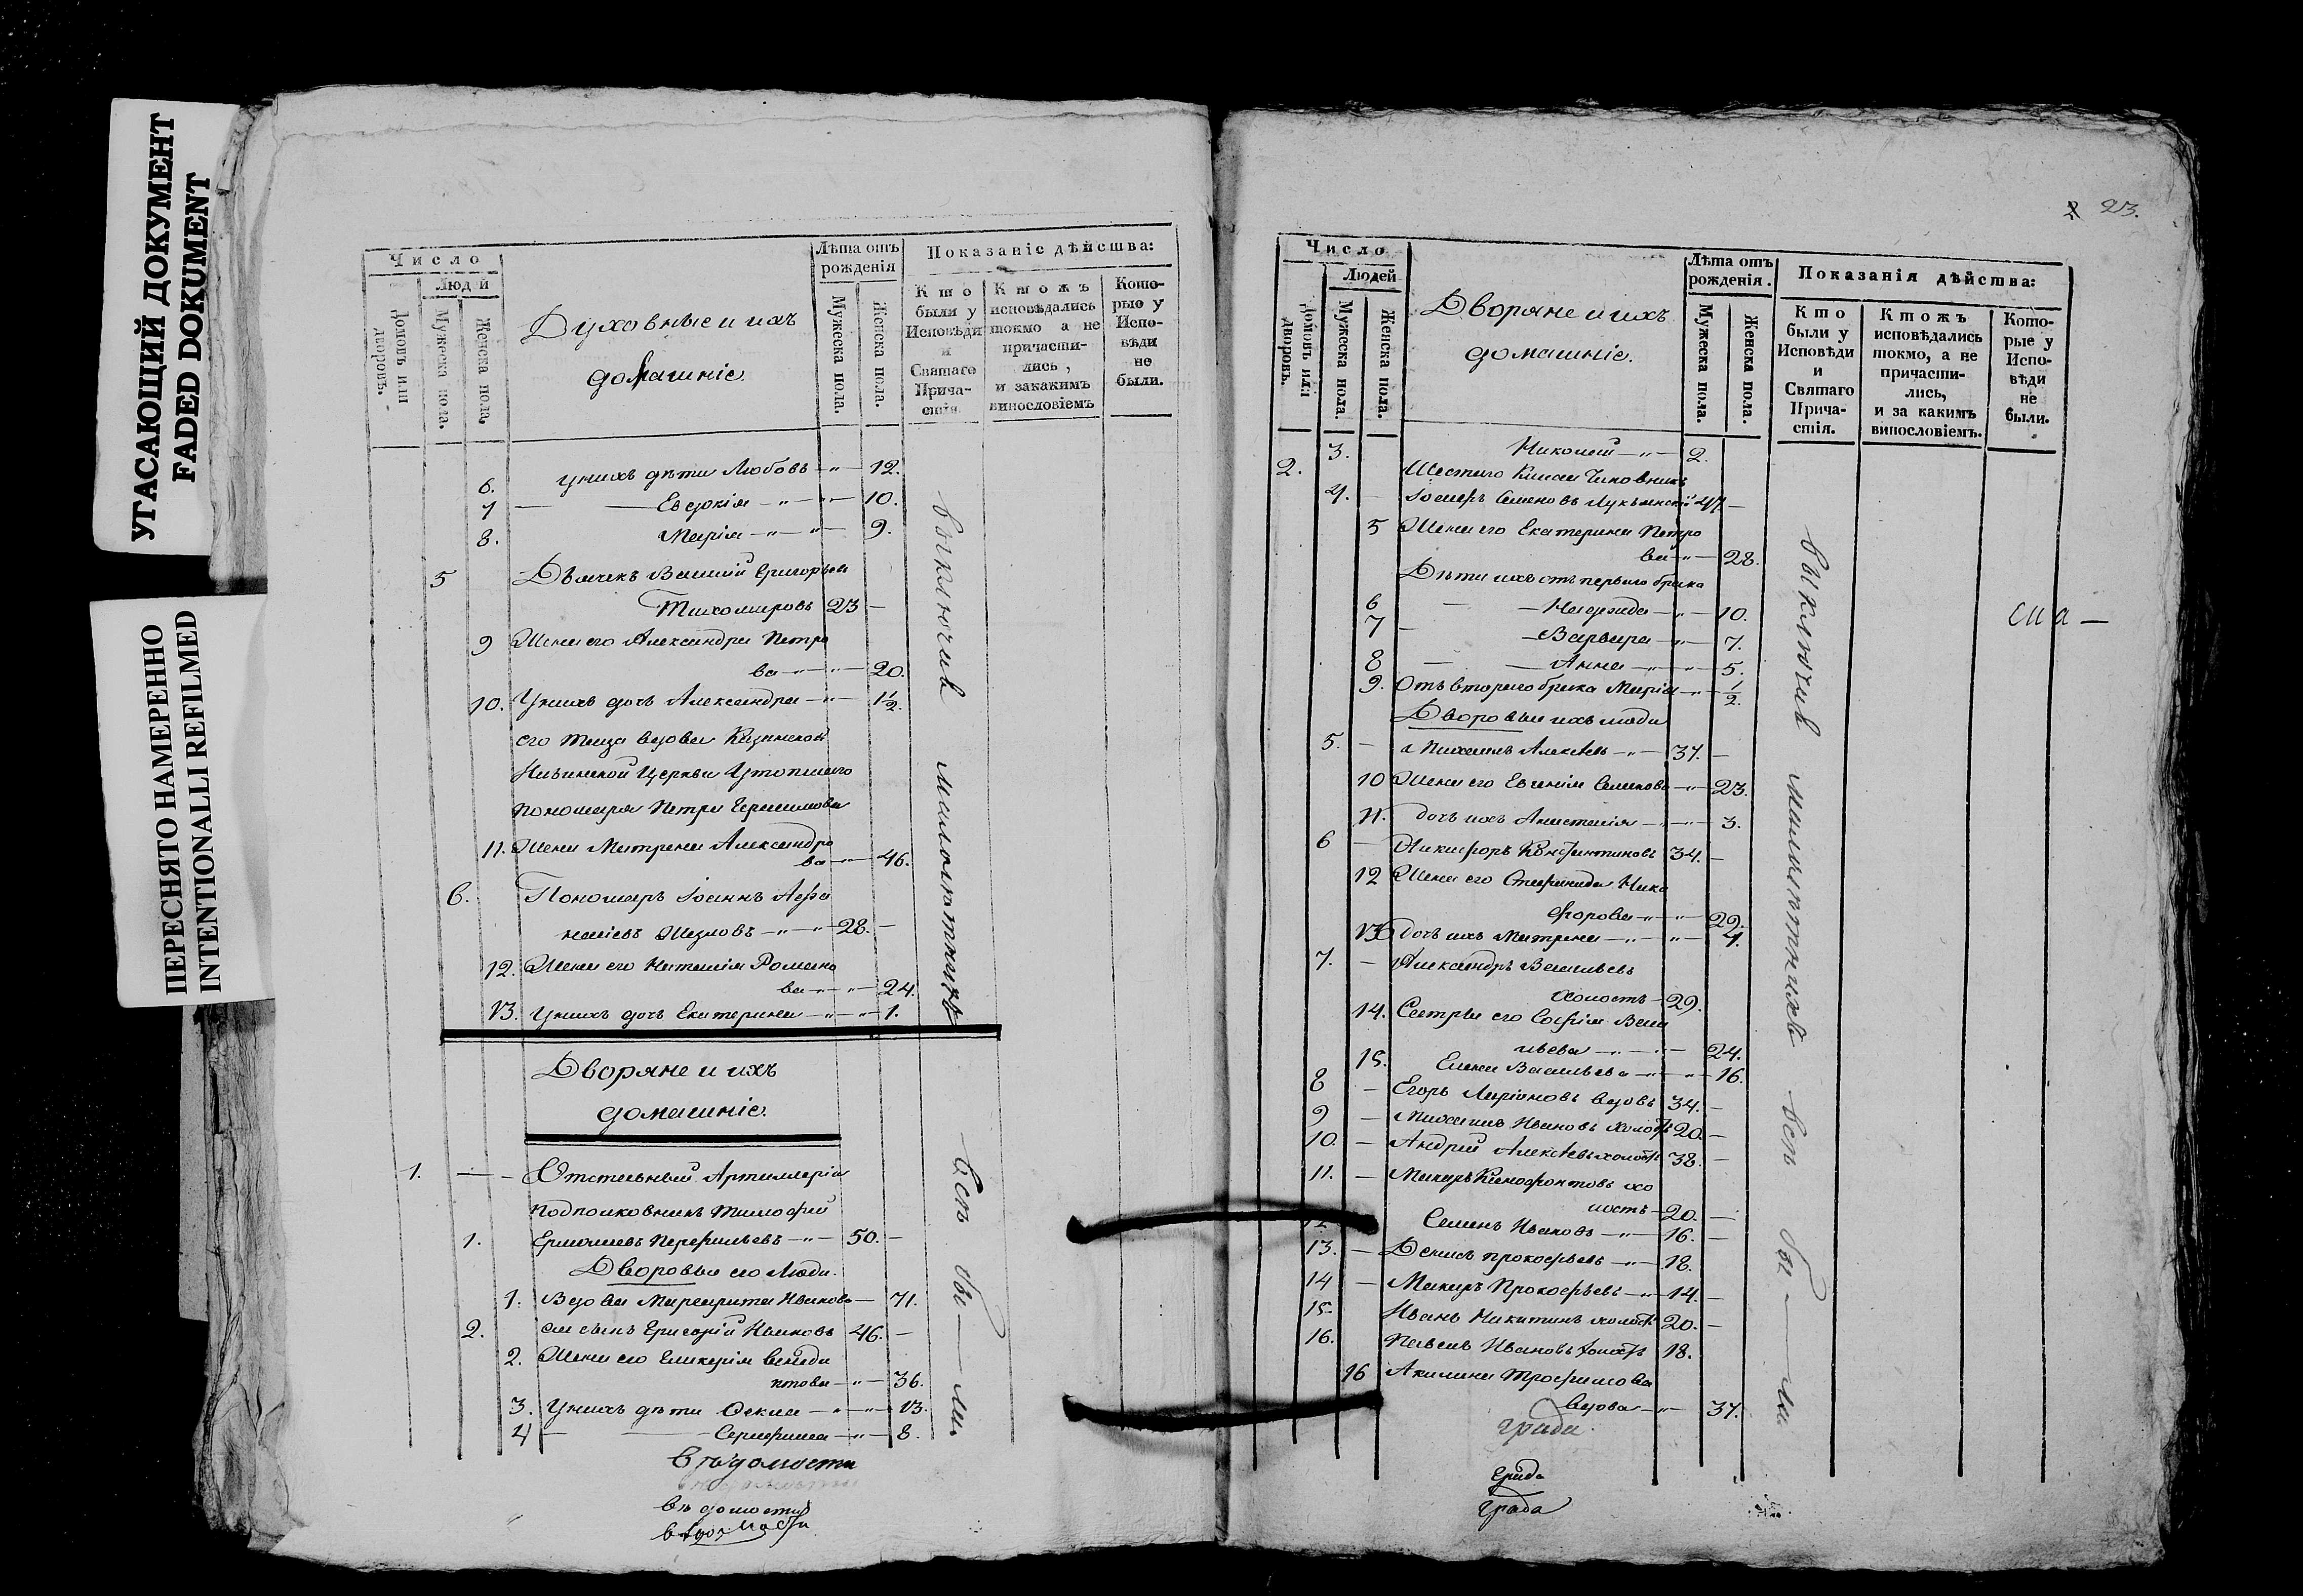 УГАСАЮЩИЙ ДОКУМЕНТ
FADED DOKUMENT
ПЕРЕСНЯТО НАМЕРЕННО
INTENTIONALLI REFILMED
Число
Людй
Домовъ или дворовъ.
Мужеска пола.
Женска пола.
Духовные и ихъ
домашніе.
Лѣта отъ
рожденія
Мужеска пола.
Женска пола.
Показаніе дѣйства:
Кто
были у
Исповѣди
и
Святаго
Прича-
стія
Ктожъ
исповѣдались
токмо а не
причасти-
лись,
и закакимъ
винословіемъ
Кото-
рые у
Испо-
вѣди
не
были.
6. у нихъ дѣти Любовь -"- 12.
7 Евдокія -"- 10.
8. Марія -"- 9.
5 Дьячекъ Василій Григорьев
Тихомировъ 23 -
9 Жена его Александра Петро
ва -"- 20.
10. У нихъ дочь Александра -"- 1½.
его теща вдова
Церкви Утопшаго
пономаря Петра Герасимова
11. Жена Матрена Александро
ва -"- 46.
6. Пономарь Іоаннъ Афа
насіевъ -"- 28. -
12. Жена его Наталія Романо
ва -"- 24.
13. У нихъ дочь Екатерина -"- 1.
Дворяне и ихъ
домашніе.
1. Отставный Артиллеріи
подполковникъ Тимофей
1. -"- 50. -
Дворовыя его Люди.
1. Вдова Маргарита Иванова - 71.
2. ея сынъ Григорій Ивановъ 46. -
2. Жена его Гликерія Венеди
ктова -"- 36.
3. У нихъ дѣти Фекла -"- 13.
4 Серафима -"- 8.
исключив малолѣтныхъ всѣ бы — ли.
вѣдомости
23.
Число
Людей
Домовъ или дворовъ.
Мужеска пола.
Женска пола.
Дворяне и ихъ
домашніе.
Лѣта отъ
рожденія.
Мужеска пола.
Женска пола.
Показанія дѣйства:
Кто
были у
Исповѣди
и
Святаго
Прича-
стія.
Ктожъ
исповѣдались
токмо, а не
причасти-
лись,
и за какимъ
винословіемъ.
Кото-
рые у
Испо-
вѣди
не
были.
3. Николай -"- 2.
2. Шестаго Класса Чиновникъ
4. - Семеновъ 47. -
5 Жена его Екатерина Петро
ва -"- 28.
Дѣти ихъ отъ перваго брака
6 - Надежда -"- 10.
7 - Варвара -"- 7.
8 - Анна -"- 5.
9. Отъ втораго брака Марія -"- ½
Дворовыя ихъ люди
5. - Михаилъ Алексѣевъ -"- 37. -
10 Жена его Евгенія Семенова -"- 23.
11. дочь ихъ Анастасія -"- 3.
6 - Никифоръ Константиновъ 34. -
12 Жена его Стефанида Ники
форова -"- 29.
13 дочь ихъ Матрена -"- 4.
7. - Александръ Васильевъ
холостъ - 29.
14. Сестры его Софія Васи
льева -"- 24.
15. Елена Васильева -"- 16.
8 - Егоръ Ларіоновъ вдовъ 34. -
9 - Михаилъ Ивановъ холостъ 20. -
10. - Андрей Алексѣевъ холостъ 38. -
11. - Макаръ Ксенофонтовъ хо
лостъ - 20. -
12 Семенъ Ивановъ -"- 16. -
13. - Денисъ Прокофьевъ -"- 18.
14 - Макаръ Прокофьевъ -"- 14. -
15. Иванъ Никитинъ холостъ 20. -
16. Павелъ Ивановъ холостъ 18.
16 Акилина Трофимова
вдова -"- 37.
исключив малолѣтнихъ всѣ бы — ли
сиа —
града
града
града